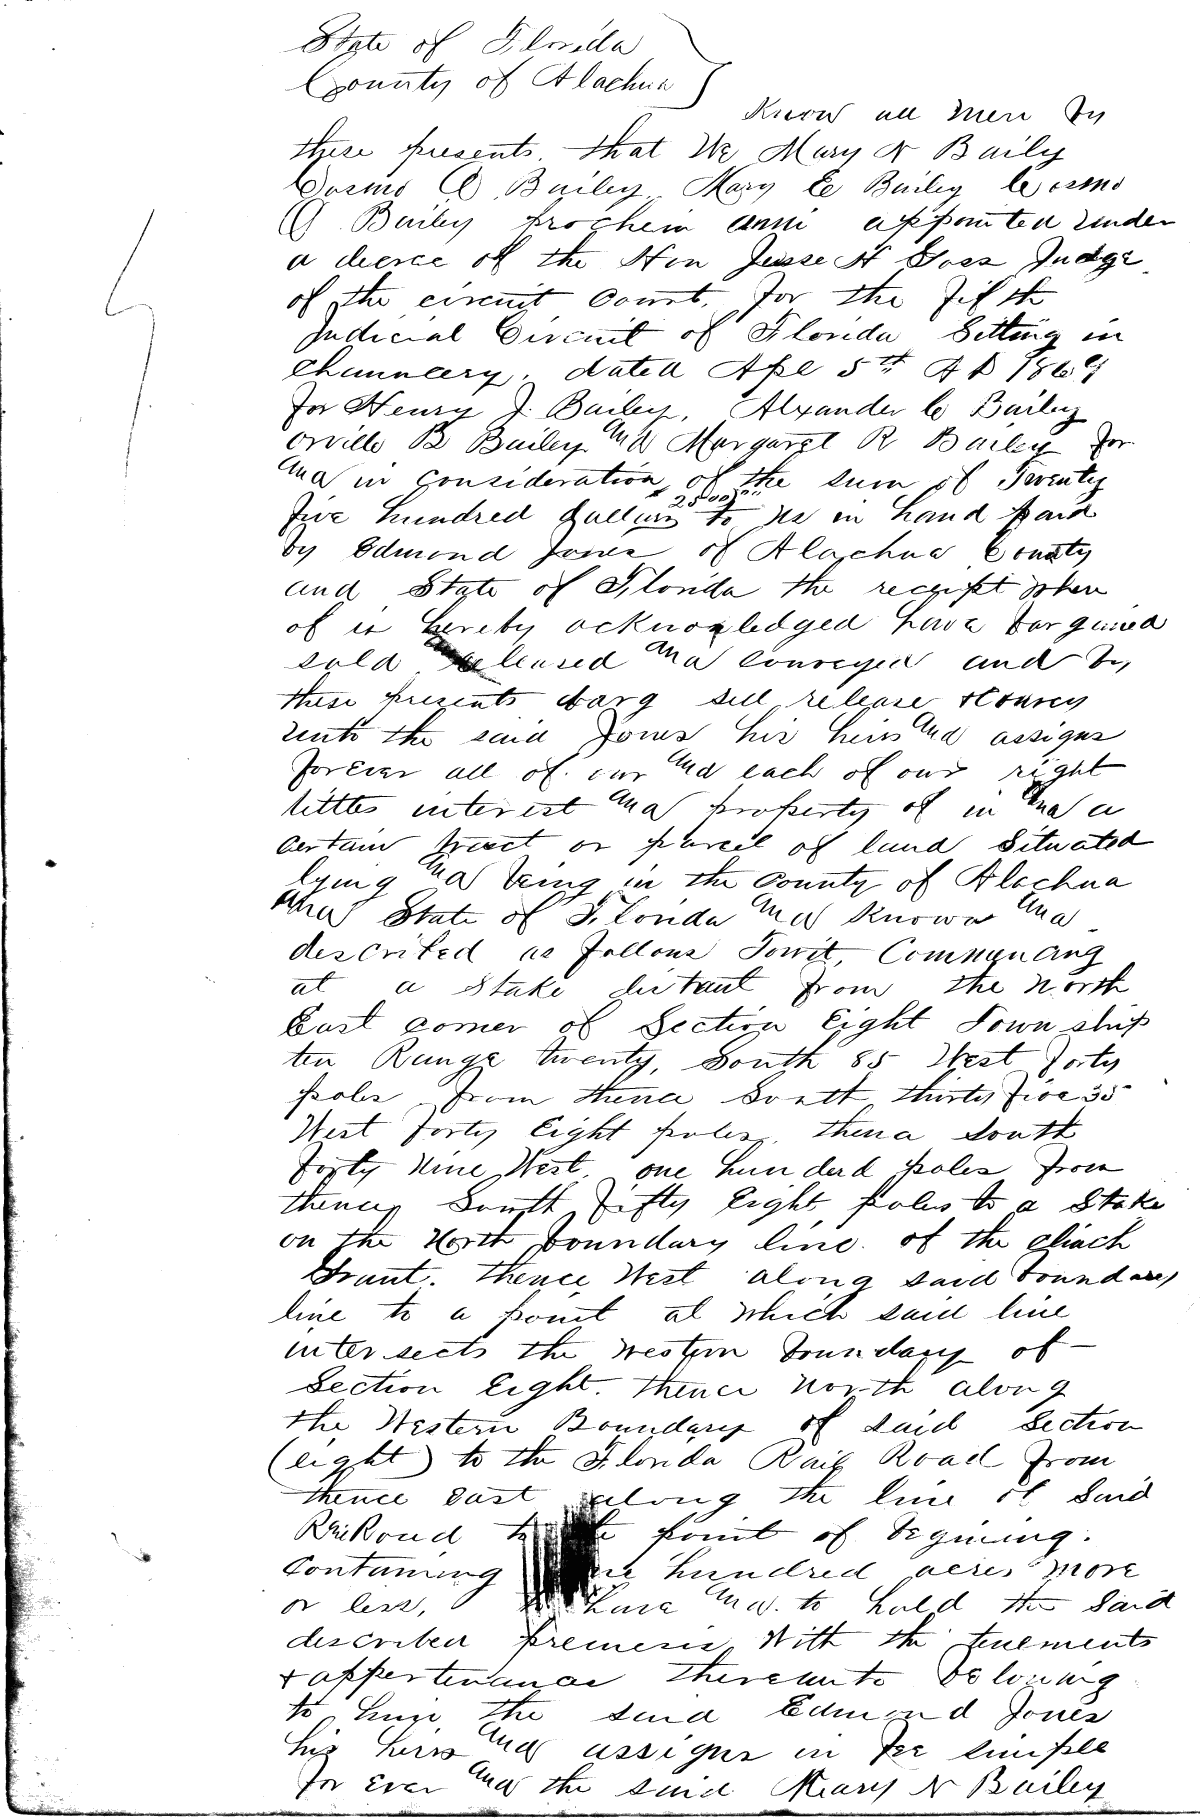 State of Florida
County of Alachua
Know all men by
these presents. that We Mary N Baily
Cosmo O Bailey Mary E Bailey Cosmo
O Bailey prochein ami appointed under
a decree of the Hon Jesse H Goss Judge
of the circuit Court. for the Fifth
Judicial Circuit of Florida Sitting in
Channcery. dated Apl 5th A D 1869
for Henry J. Bailey, Alxander C Bailey
orville B Bailey and Margaret R Bailey for
and in consideration of the sum of Twenty
five hundred dollars $2500 to us in hand paid
by Edmond Jones of Alachua County
and State of Florida the receipt when
of is hereby acknowledged have bargained
sold released and conveyed and by
these presents barg sell release & convey
unto the said Jones his heirs and assigns
forever all of our and each of our right
tittes interest and property of in and a
certain tract or parcel of land Situated
lying and being in the County of Alachua
and State of Florida and known and
described as follows Towit, Commencing
at a Stake distant from the North
East corner of Section Eight Town ship
ten Range twenty, South 85 West forty
poles from thence South thirty five 35
West forty Eight poles, thence South
forty nine West. one hunderd poles from
thence South fifty Eight poles to a Stake
on the North boundary line. of the
Grant. thence West along said boundary
line to a point at which said line
intersects the western boundary of
Section Eight. thence North along
the Western Boundary of said Section
(eight) to the Florida Rail Road from
thence East along the line of Said
RailRoad to the point of begining.
Containing hundred acres more
or less, to have and to hold the Said
described premesis With the tenements
& appertenances thereunto belonging
to him the said Edmond Jones
his heirs and assigns in Fee simple
for ever and the said Mary N Bailey